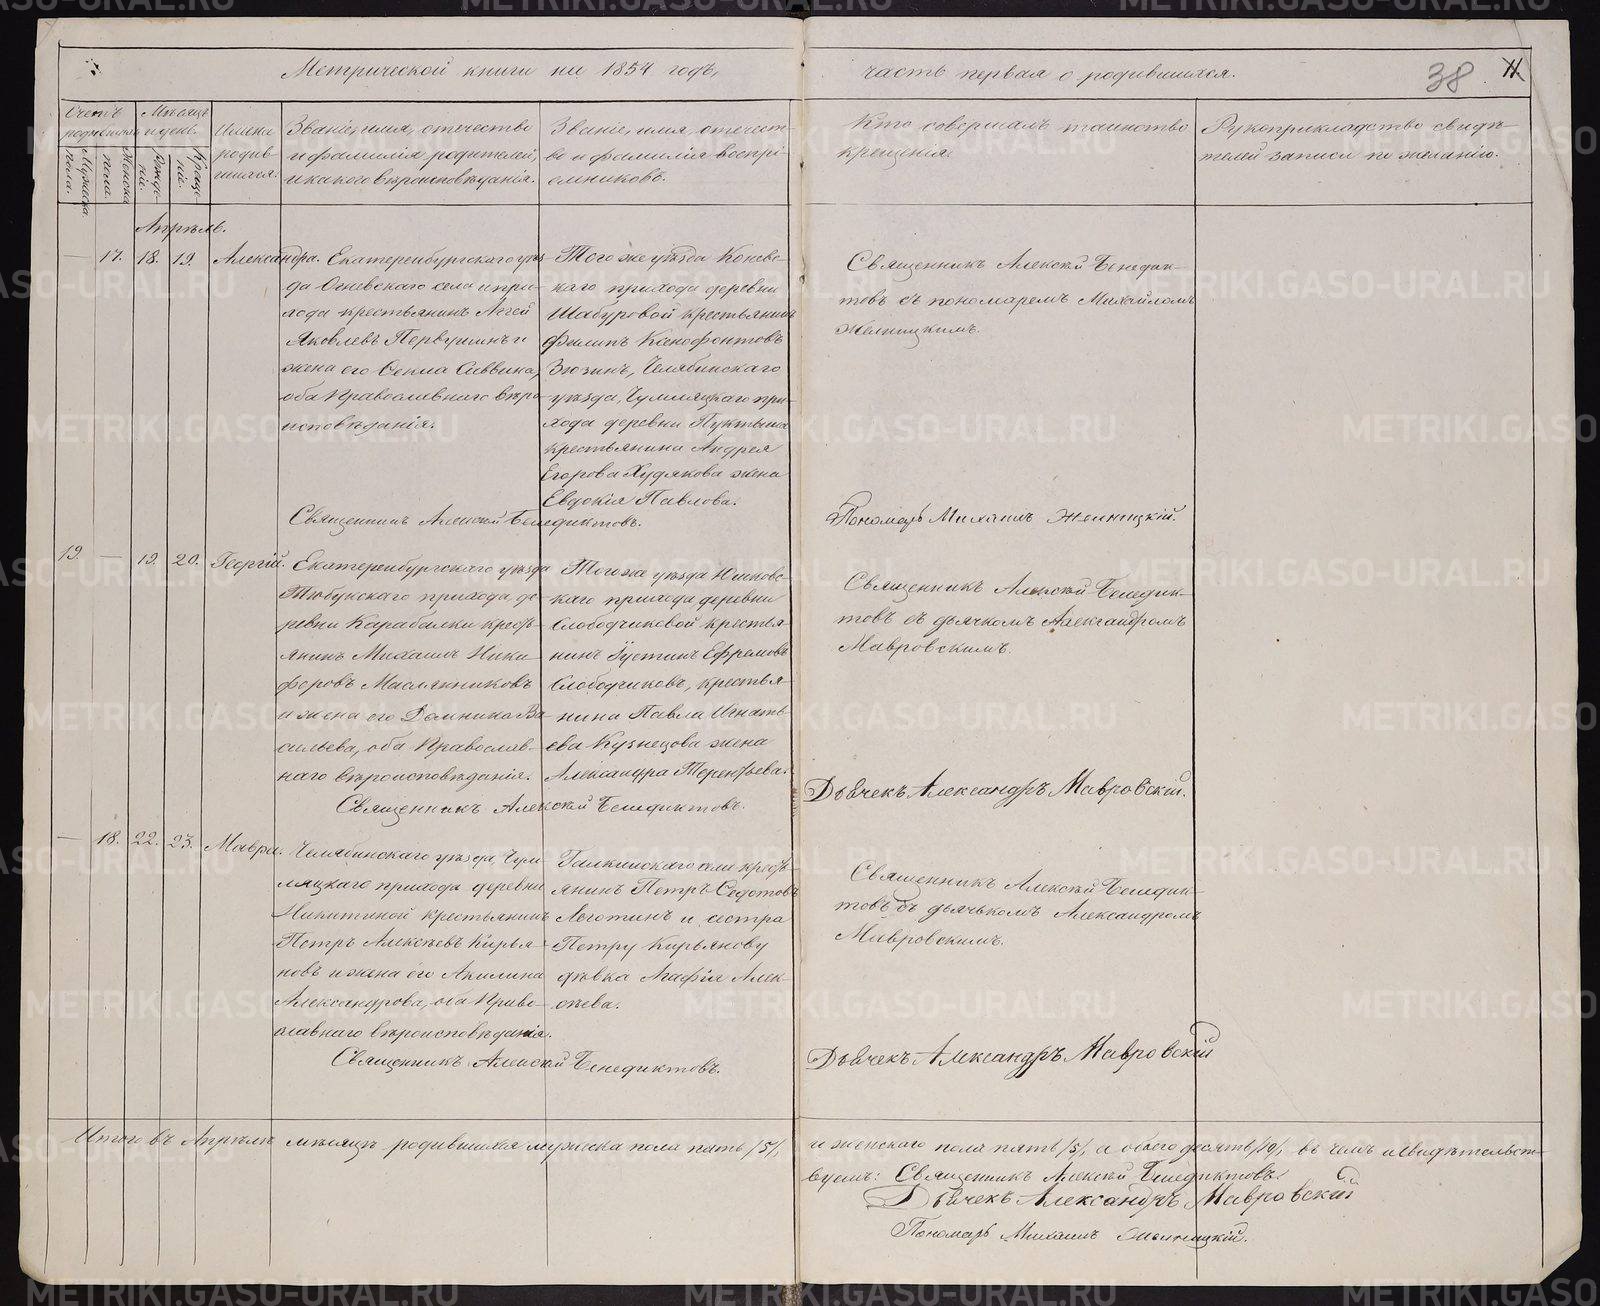 Метрической книги на 1854 годъ,
часть первая о родившихся.
38
11
Счетъ родившихся
Мужеска пола.
Женска пола.
Мѣсяцъ и день
Рожденія.
Крещенія.
Имена родившихся.
Званіе, имя, отечество
и фамилія родителей,
и какого вѣроисповѣданія.
Званіе, имя, отечест-
во и фамилія воспрі-
емниковъ.
Кто совершалъ таинство
крещенія.
Рукоприкладство свидѣ-
телей записи по желанію.
Апрѣль.
— 17. 18. 19. Александра.
Екатеринбургскаго уѣз-
да Огневскаго села и при-
хода крестьянинъ
Яковлевъ Первушинъ и
жена его Саввина,
оба Православнаго вѣро-
исповѣданія.
Того же уѣзда Конев-
скаго прихода деревни
Шабуровой крестьянинъ
Филипъ Ксенофонтовъ
Зюзинъ, Челябинскаго
уѣзда, Чумляцкаго при-
хода деревни
крестьянина Андрея
Егорова Худякова жена
Евдокія Павлова.
Священникъ Алексѣй Бенедик-
товъ съ пономаремъ Михаиломъ
Желницкимъ.
Священникъ Алексѣй Бенедиктовъ.
Пономарь Михаилъ Желницкій.
19. — 19. 20. Георгій.
Екатеринбургскаго уѣзда
Тюбукскаго прихода де-
ревни Карабалки крестъ-
янинъ Михаилъ Ники-
форовъ Маслянниковъ
и жена его Домника Ва-
сильева, оба Православ-
наго вѣроисповѣданія.
Того же уѣзда
каго прихода деревни
Слободчиковой крестья-
нинъ Іустинъ Ефремовъ
Слободчиковъ, крестья-
нина Павла Игнать-
ева Кузнецова жена
Александра Терентьева.
Священникъ Алексѣй Бенедик-
товъ съ дьячкомъ Александромъ
Мавровскимъ.
Священникъ Алексѣй Бенедиктовъ.
Дьячекъ Александръ Мавровскій.
— 18. 22. 23. Мавра.
Челябинскаго уѣзда, Чум-
ляцкаго прихода деревни
Никитиной крестьянинъ
Петръ Алексѣевъ Кирья-
новъ и жена его Акилина
Александрова, оба Право-
славнаго вѣроисповѣданія.
Галкинскаго села кресть-
янинъ Петръ Седотовъ
Леготинъ и сестра
Петру Кирьянову
дѣвка Агафія Алек-
сѣева.
Священникъ Алексѣй Бенедик-
товъ съ дьячькомъ Александромъ
Мавровскимъ.
Священникъ Алексѣй Бенедиктовъ.
Дьячекъ Александръ Мавровскій
Итого въ Апрѣлѣ мѣсяцѣ родившихся мужеска пола пять /5/,
и женскаго пола пять /5/, а обоего десять /10/, въ чемъ и свидѣтельст-
вуемъ: Священникъ Алексѣй Бенедиктовъ.
Дьячекъ Александръ Мавровскій
Пономарь Михаилъ Желницкій.
METRIKI.GASO-URAL.RU